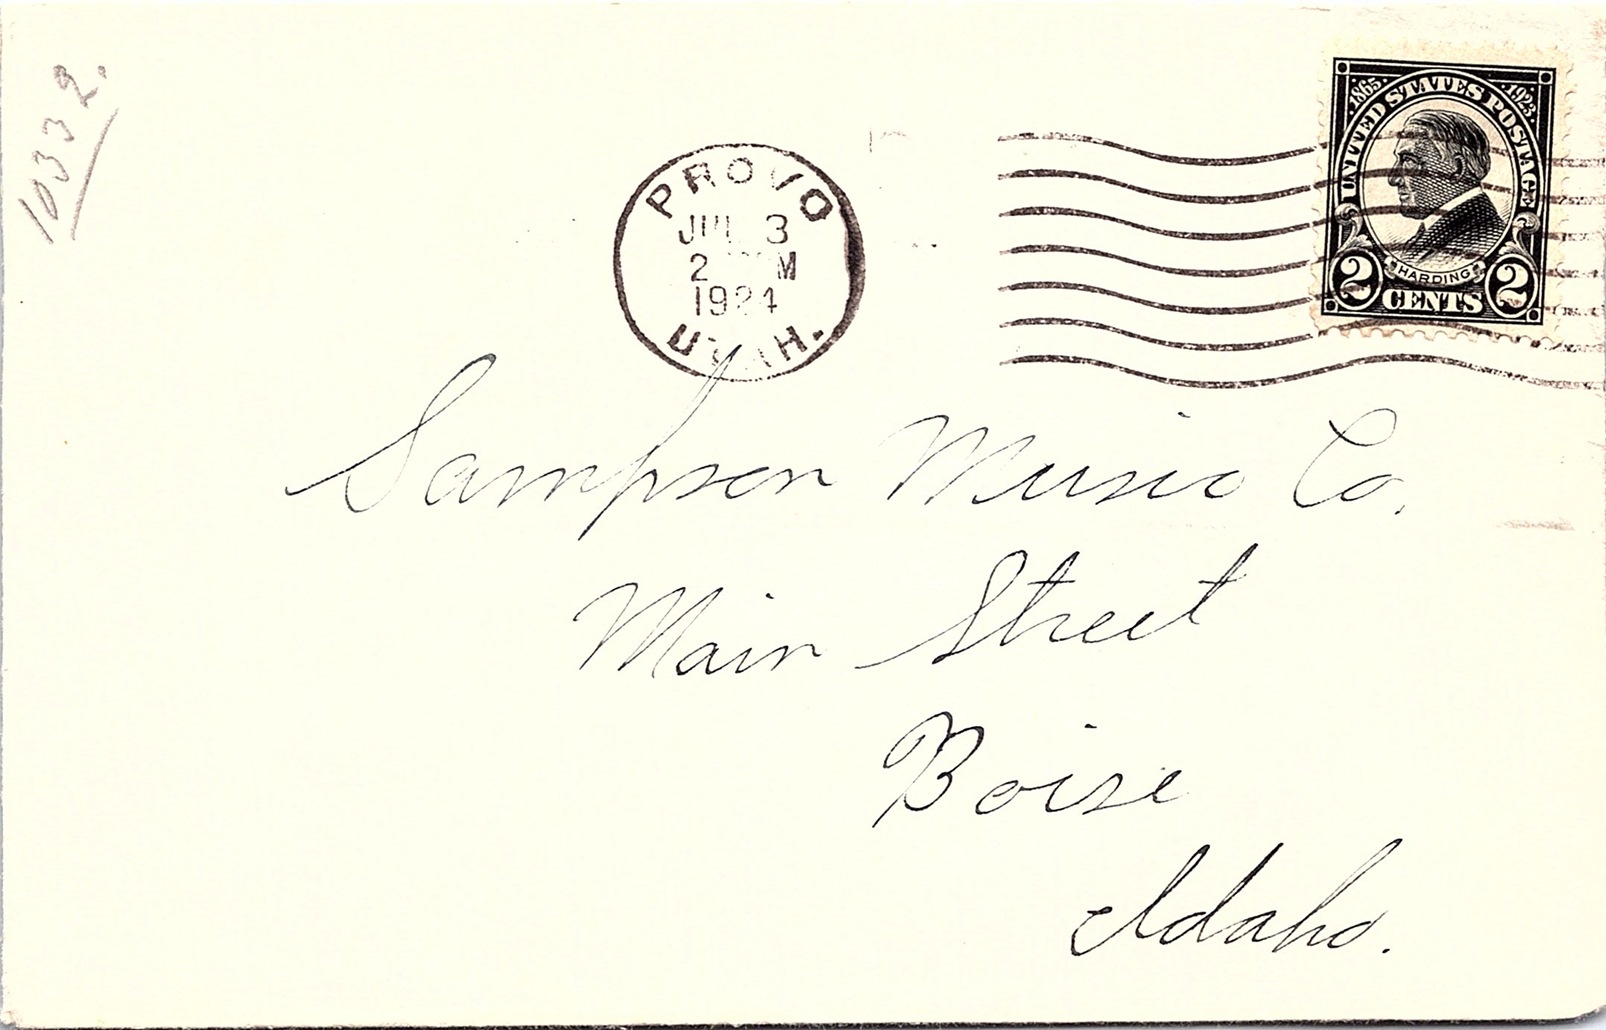 10332.
PROVO
JUL 3
2 M
1924
UTAH.
1865 1923
UNITED STATES POSTAGE
HARDING
2 CENTS 2
Sampson Music Co.
Main Street
Boise
Idaho.